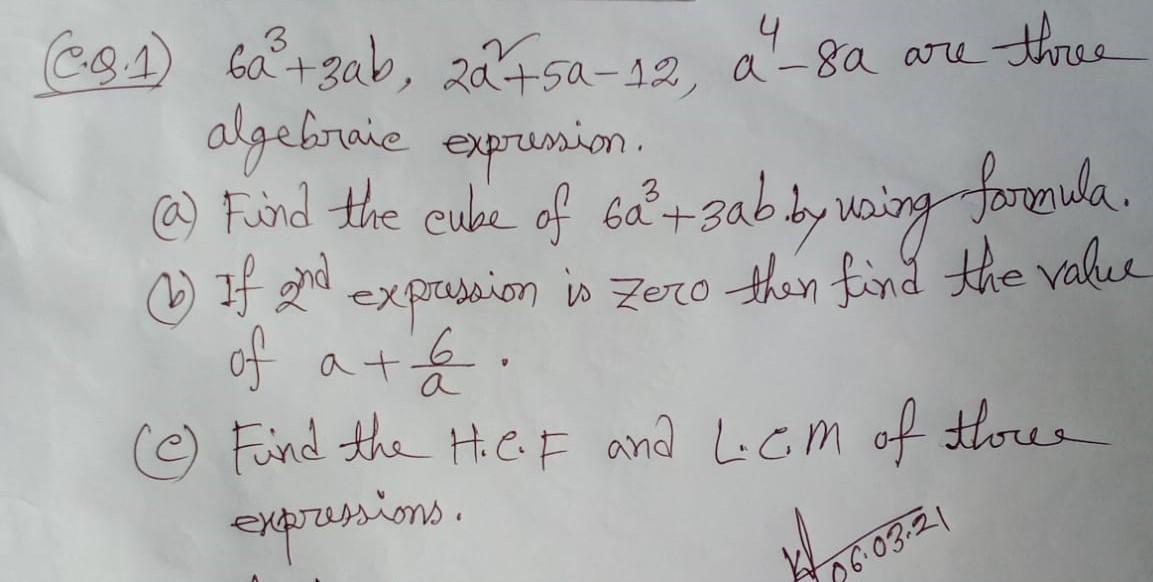 (C.Q.1) 6a³+3ab, 2a²+5a-12, a⁴-8a are three
algebraic expression.
(a) Find the cube of 6a³+3ab. by using formula.
(b) If 2nd expression is zero then find the value
of a + 6/a .
(c) Find the H.C.F and L.C.M of three
expressions.
06.03.21